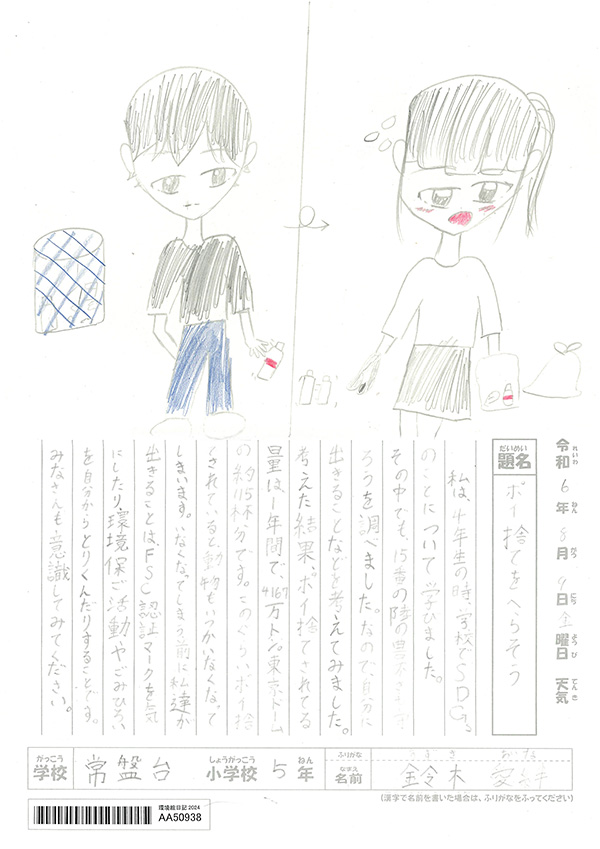 令和6年8月9日金曜日 天気
れいわ ねん がつ にち ようび てんき
だいめい
題名
ポイ捨てをへらそう
私は、4年生の時、学校でSDGs
のことについて学びました。
その中でも、15番の陸の豊かさも守
ろうを調べました。なので、自分に
出きることなどを考えてみました。
考えた結果、ポイ捨てされてる
量は1年間で、4167万トン。東京ドーム
の約115杯分です。このぐらいポイ捨
てされていると、動物もいつかいなくなって
しまいます。いなくなってしまう前に私達が
出きることは、FSC認証マークを気
にしたり、環境保ご活動やごみひろい
を自分からとりくんだりすることです。
みなさんも意識してみてください。
がっこう
学校 常盤台
しょうがっこう ねん
小学校 5年
ふりがな
なまえ
名前 鈴木
(漢字で名前を書いた場合は、ふりがなをふってください)
環境絵日記 2024
AA50938